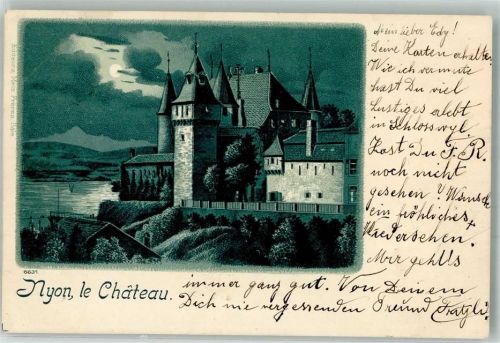 Mein lieber Edy!
Deine Karten erhalten.
Wie ich vermute
hast Du viel
Lustiges erlebt
in Schlosswyl
Hast Du F. R.
noch nicht
gesehen?
ein fröhliches
Wiedersehen.
Mir geht's
immer ganz gut. Von Deinem
Dich nie vergessenden Freund
6631
Nyon, le Château.